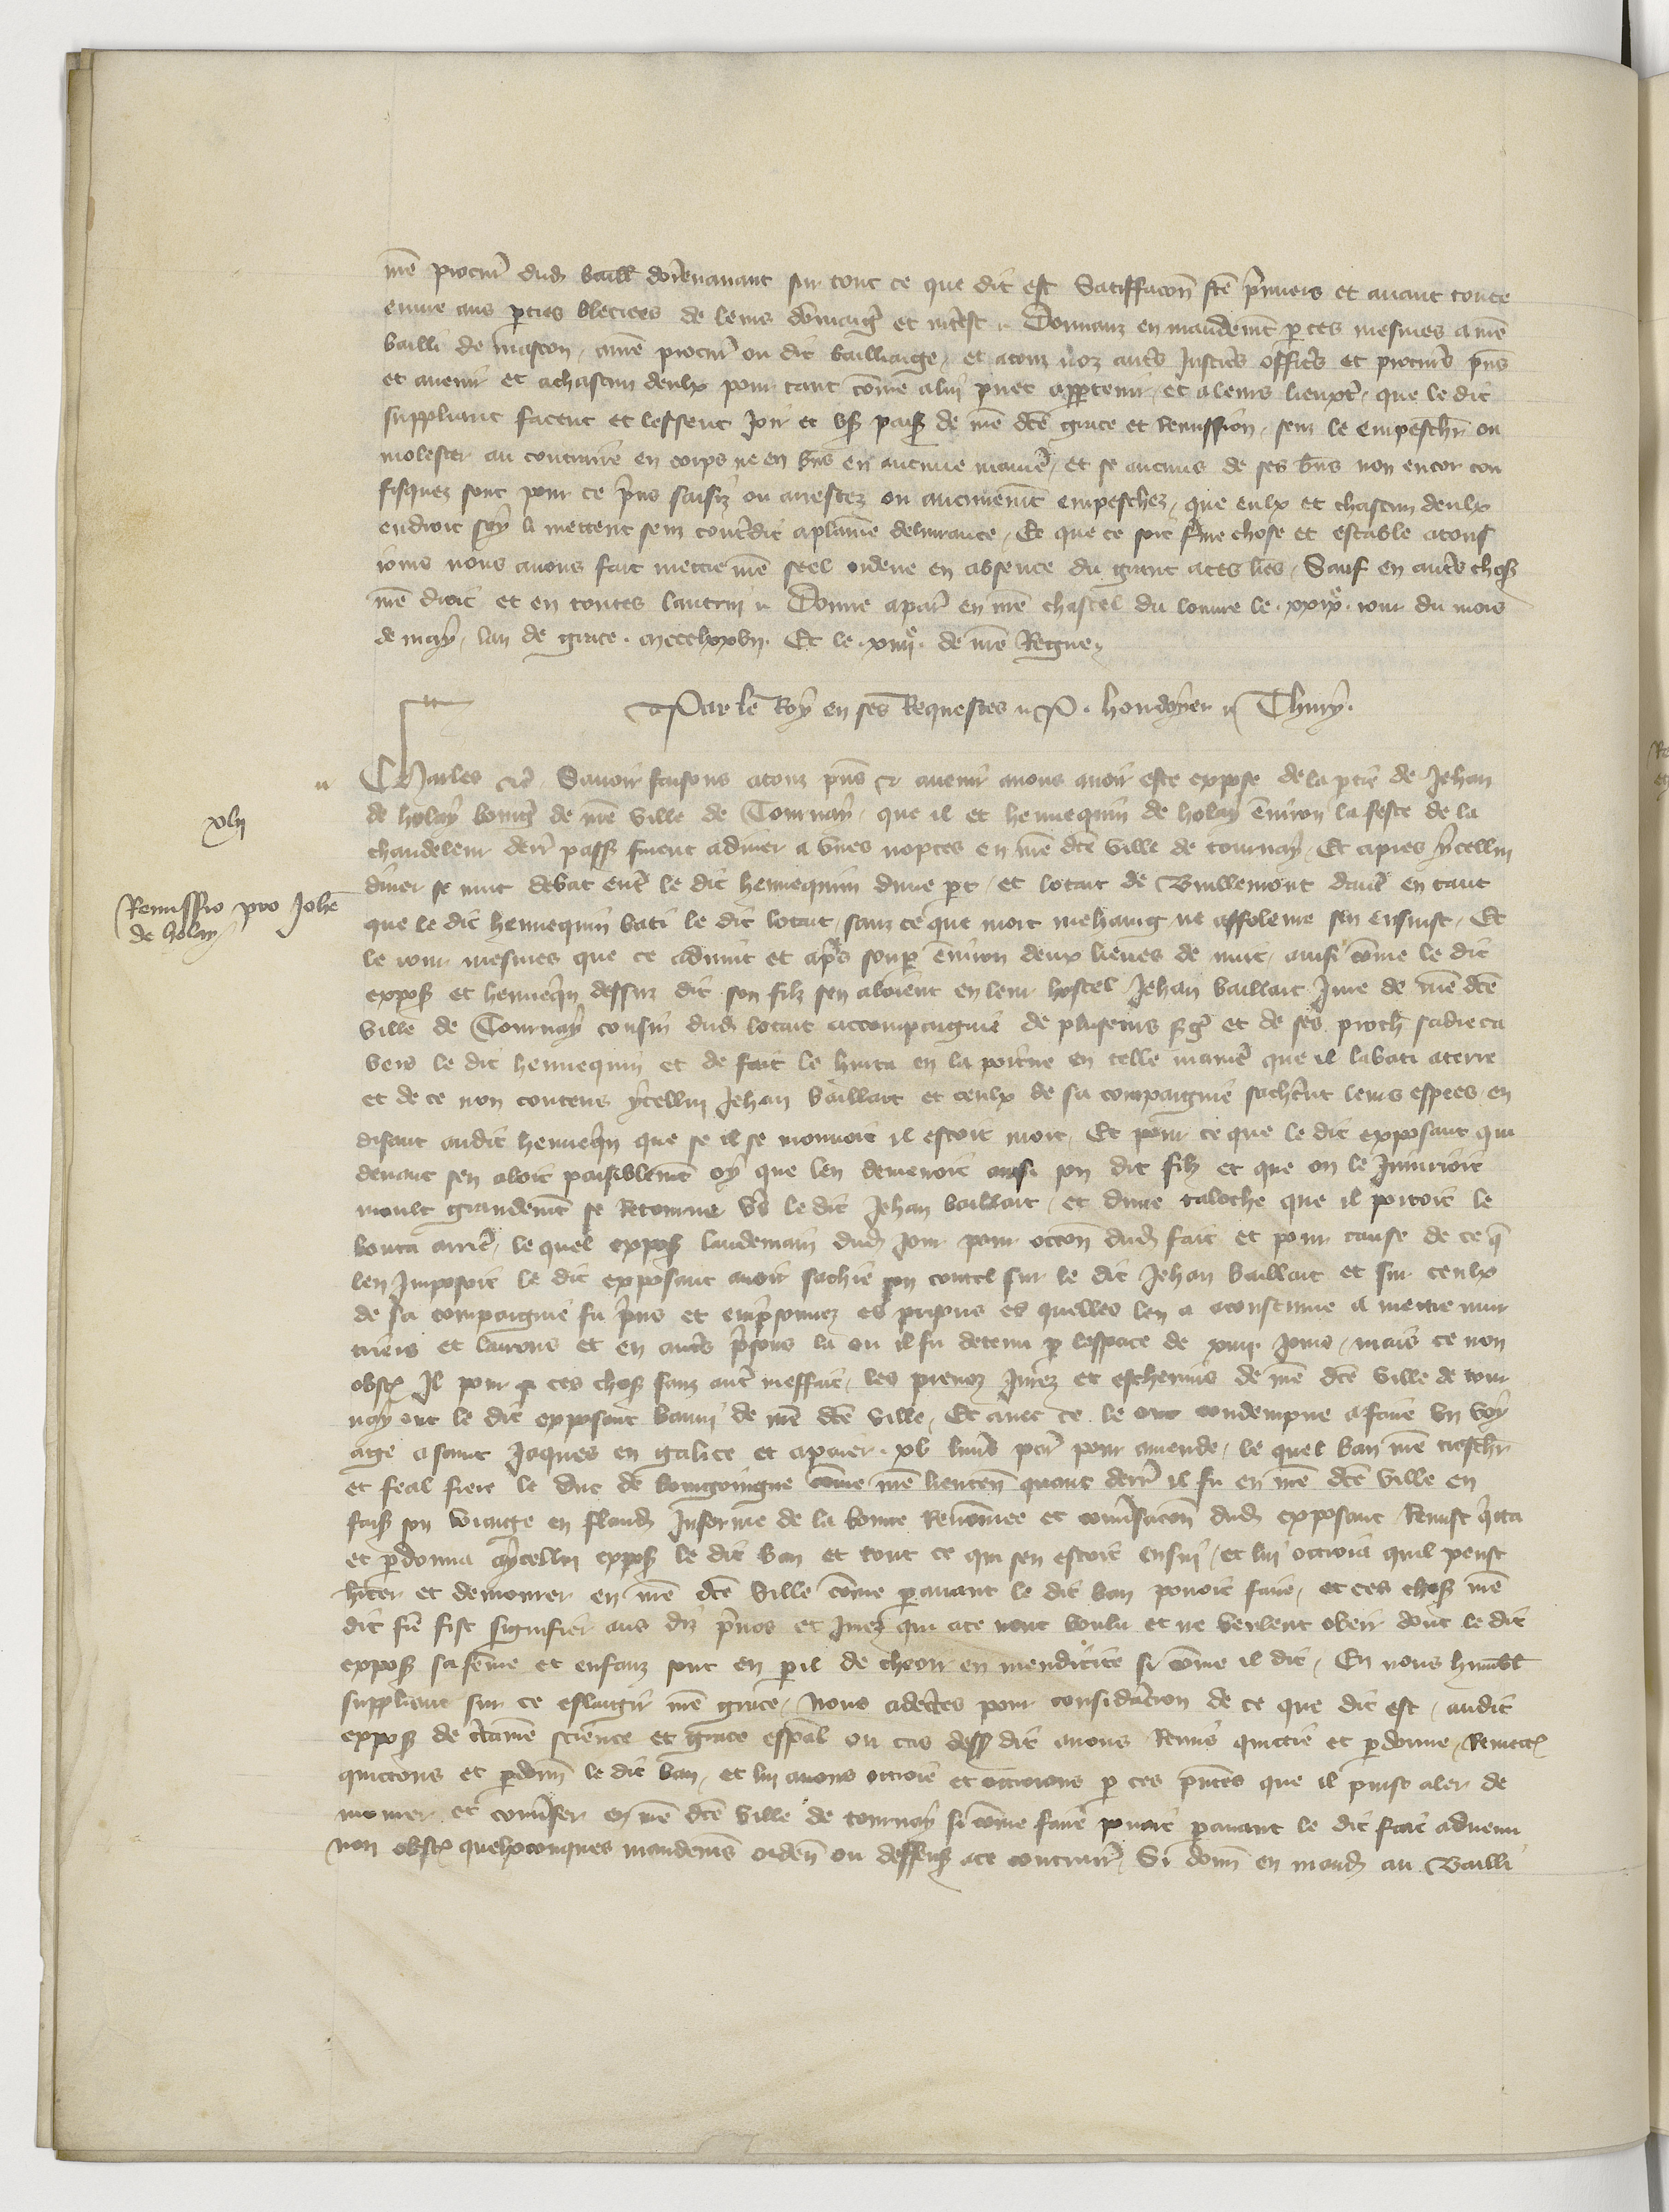 nr̃e procur̃ dud baill dorenavant sur tout ce que dit est Satiffacōn fc̃e p̃miers et avant toute
euure aus pties bleciees de leurs dōmaig̃ et int̃est Donnanz en mandemt̃ p ces mesmes a nr̃e
bailli de mascon, a nr̃e procur̃ ou dit bailliaige, et a touz noz autr̃s justic̃s offic̃s et procur̃s p̃ns
et avenir et a chascun deulx pour tant cōme a lui puet appartenir, et a leurs lieuxt̃, que le dit
suppliant facent et lessent joir et us paisi de nr̃e dc̃e grace et remission, senz le empeschr̃ ou
molester au contraire en corps ne en bñs en aucune manir̃e, et se aucuns de ses bñs non encor con
fisquez sont pour ce p̃ns saisiz ou arrestez ou aucunemt̃ empeschez, que eulx et chascun deulx
endroit soy li mettent senz cont̃dit a plainne delivrance, Et que ce soit ferme chose et estable a tous
jours nous avons fait mettre nr̃e seel ordene en absence du grant a ces lr̃es, Sauf en autr̃s chos
nr̃e droit et en toutes lautrui Donne a par̃ en nr̃e chastel du louvre le . xxixe . jour du mois
de may, lan de grace . mccclxxvii . Et le . xiiiie . de nr̃e Regne
Par le Roy en ses Requestes P . houdoyer Thury .
Charles &c̃ Savoir faisons a touz p̃ns & avenir a nous avoir este expose de la ptie de Jehan
xlii
de holay bourg̃ de nr̃e ville de Tournay, que il et hennequin de holay environ la feste de la
chandeleur derr̃ pass furent a diner a unes nopces en nr̃e dc̃e ville de tournay, Et apres ycellui
Remissio pro Johe
de holay
diner se mut debat entr̃ le dit hennequin dune pt, et lotart de Vuillemont dautr̃ en tant
que le dit hennequin bati le dit lotart, sanz ce que mort mehaing ne affoleure sen ensuist, Et
le jour mesmes que ce advint et apr̃s soup environ deux lieues de nuit, ainsi cōme le dit
expos et henneqin dessuz dit son filz sen aloient en leur hostel Jehan baillart jure de nr̃e dc̃e
ville de Tournay cousin dud lotart accompaignie de pluseurs s̃g̃ et de ses proch̃ sadreca
vers le dit hennequin et de fait le hurta en la poitrine en telle manir̃e que il labati a terre
et de ce non contens ycellui Jehan baillart et ceulx de sa compaignie sachr̃ent leurs espees en
disant au dit henneqin que se il se mouvoit il estoit mort, Et pour ce que le dit exposant qui
devant sen aloit paisiblemt̃ oy que len demenoit ainsi son dit filz et que on le injurioit
moult grandemt̃ se retourna vs̃ le dit Jehan baillart, et dune taloche que il portoit le
bouta arrir̃e, le quel expos landemain dud jour pour occōn dud fait et pour cause de ce q̃
len imposoit le dit exposant avoir sachie son coutel sur le dit Jehan baillart et sur ceulx
de sa compaignie fu p̃ns et emp̃sonnez es prisons es quelles len a acoustume a mettre mur
triers et larrons et en autr̃s p̃sons la ou il fu detenu p lespace de xiiii jours, mais ce non
obst̃ Il pour ces chos sanz autr̃ meffait, les prevoz jurez et eschevins de nr̃e dc̃e ville de tour
nay ont le dit exposant banni de nr̃e dc̃e ville, Et avec ce le ont condempne a faire un voy
aige a saint Jaques en galice et a paier . xv livr̃s par̃ pour amende, le quel ban nr̃e treschr̃
et feal frere le duc de bourgoingne cōme nr̃e lieuten̄ quant derr̃ il fu en nr̃e dc̃e ville en
fais son voiaige en fland Informe de la bonne renōmee et conṽsacōn dud exposant remist q̃tta
et pdonna a ycellui expos le dit ban et tout ce qui sen estoit ensui, et lui ottroia quil peust
hiter et demourer en nr̃e dc̃e ville cōme pavant le dit ban povoit faire, et ces chos nr̃e
dit frẽ fist signifier aus diz p̃vos et jurez qui a ce nont voulu et ne veulent obeir dont le dit
expos sa fẽme et enfanz sont en peril de cheoir en mendicite si cōme il dit, En nous humbl̃
suppliant sur ce eslargir nr̃e grace, Nous adecertes pour consideracion de ce que dit est, au dit
expos de c̃tainne science et grace esp̃al ou cas dess dit avons remis quictie et pdonne, Remett̃
quictons et pdonñ le dit ban, et lui avons ottroie et ottroions p ces p̃ntes que il puisse aler de
mourer et conṽser en nr̃e dc̃e ville de tournay si cōme faire povoit pavant le dit fait advenu
non obst̃ quelxconques mandemẽs ordeñ ou deffens a ce contrair̃, Si donñ en mand au Bailli